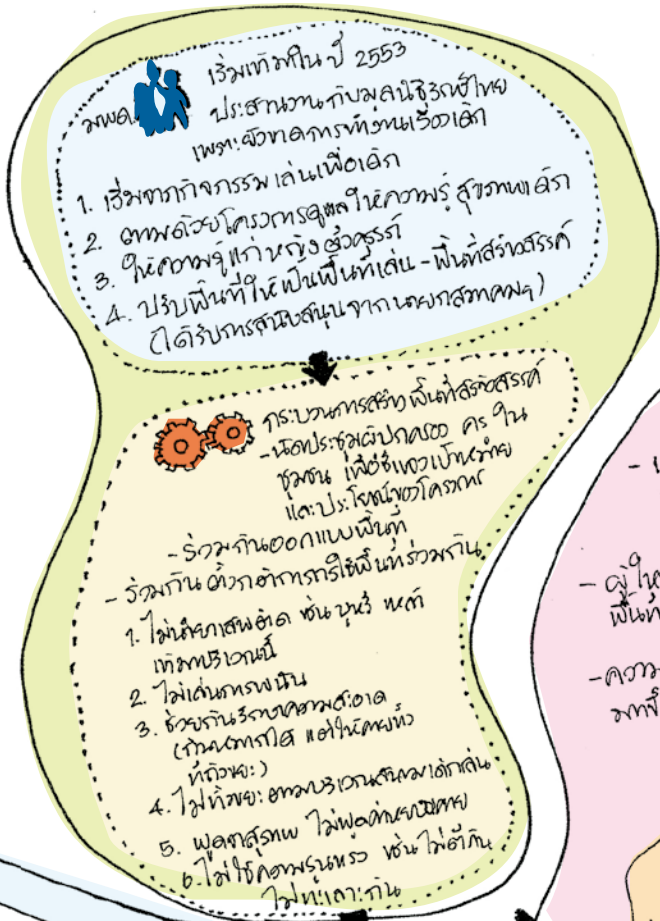 มพด. เริ่มเข้ามาใน ปี 2553
ประสานงานกับมูลนิธิรักษ์ไทย
เพราะยังขาดการทำงานเรื่องเด็ก
1. เริ่มจากกิจกรรมเล่นเพื่อเด็ก
2. ตามด้วยโครงการดูแลให้ความรู้ สุขภาพเด็ก
3. ให้ความรู้แก่หญิงตั้งครรภ์
4. ปรับพื้นที่ให้เป็นพื้นที่เล่น - พื้นที่สร้างสรรค์
(ได้รับการสนับสนุนจากนายกสมาคมฯ)
กระบวนการสร้างพื้นที่สร้างสรรค์
- นัดประชุมผู้ปกครอง ครู ใน
ชุมชน เพื่อชี้แจงเป้าหมาย
และประโยชน์ของโครงการ
- ร่วมกันออกแบบพื้นที่
- ร่วมกันตั้งกติกาการใช้พื้นที่ร่วมกัน
1. ไม่นำยาเสพติด เช่น บุหรี่ เหล้า
เข้ามาบริเวณนี้
2. ไม่เล่นการพนัน
3. ช่วยกันรักษาความสะอาด
(กินหมากได้ แต่ให้คายทิ้ง
ที่ถังขยะ)
4. ไม่ทิ้งขยะตามบริเวณสนามเด็กเล่น
5. พูดจาสุภาพ ไม่พูดคำหยาบคาย
6. ไม่ใช้ความรุนแรง เช่น ไม่ตีกัน
ไม่ทะเลาะกัน
- ผู้ให
พื้นที่
- ความ